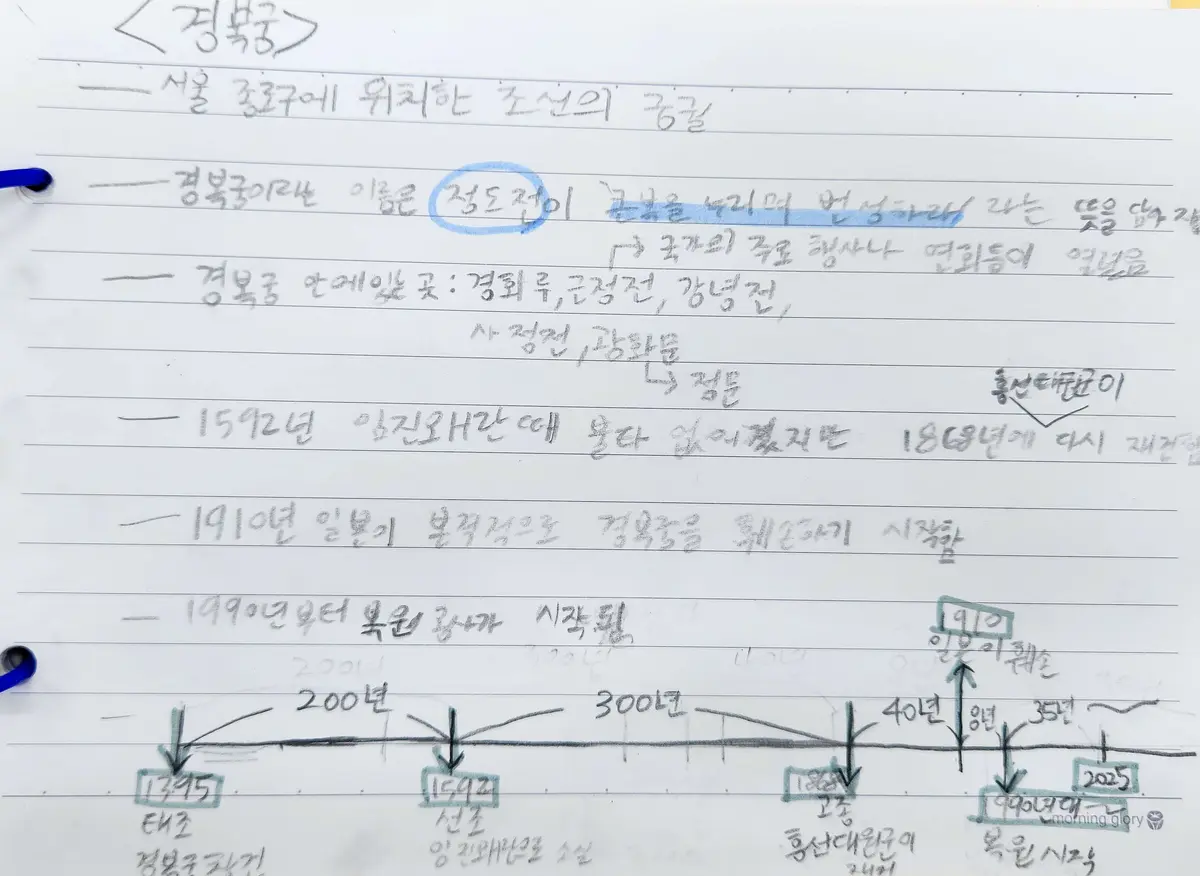 <경복궁>
— 서울 종로구에 위치한 조선의 궁궐
— 경복궁이라는 이름은 정도전이 '큰복을 누리며 번성하라' 라는 뜻을 담아
→ 국가의 주로 행사나 연회등이 열렸음
— 경복궁 안에있는 곳 : 경회루, 근정전, 강녕전,
사정전, 광화문
→ 정문
흥선대원군이
— 1592년 임진왜란 때 불타 없어졌지만 1868년에 다시 재건함
— 1910년 일본이 본격적으로 경복궁을 훼손하기 시작함
— 1990년부터 복원 공사가 시작됨
1910
일본이 훼손
200년 300년 40년 80년 35년
1395 1592 1868 1990년대~ 2025
태조 선조 고종
경복궁창건 임진왜란으로 소실 흥선대원군이 복원 시작
morning glory